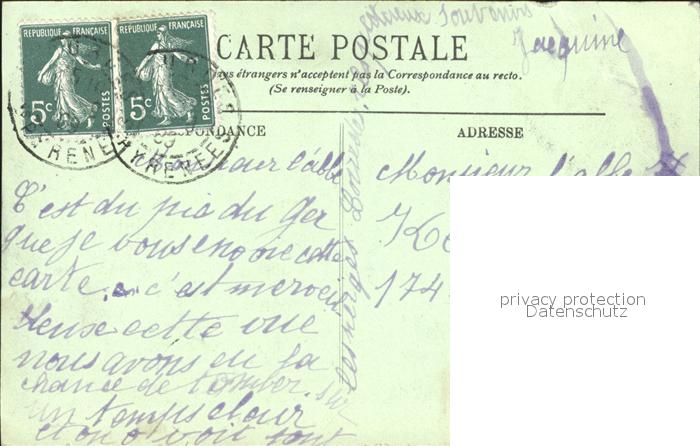 affectueux Souvenirs
Jacquine
CARTE POSTALE
pays étrangers n'acceptent pas la Correspondance au recto.
(Se renseigner à la Poste).
RÉPUBLIQUE FRANÇAISE
5c
POSTES
RÉPUBLIQUE FRANÇAISE
5c
POSTES
PONDANCE
ADRESSE
Monsieur l'abbé
C'est du pic du Ger
que je vous envoie cette
carte c'est merveil
leuse cette vue
nous avons eu la
chance de tomber sur
un temps clair
et on voit tout
Lourdes
Monsieur l'abbé
174
privacy protection
Datenschutz